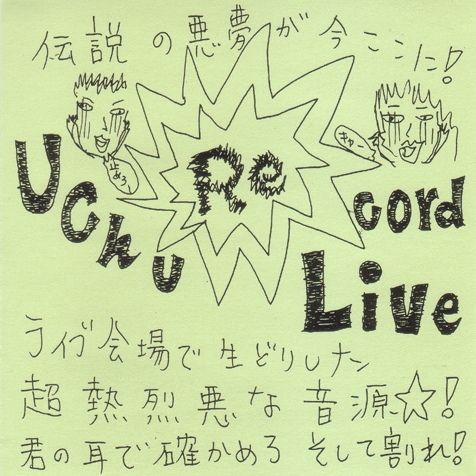 伝説の悪夢が今ここに!
止めろ!
キャー
Uchu
Record
Live
ライブ会場で生どりした
超熱烈悪な音源☆!
君の耳で確かめろ そして割れ!